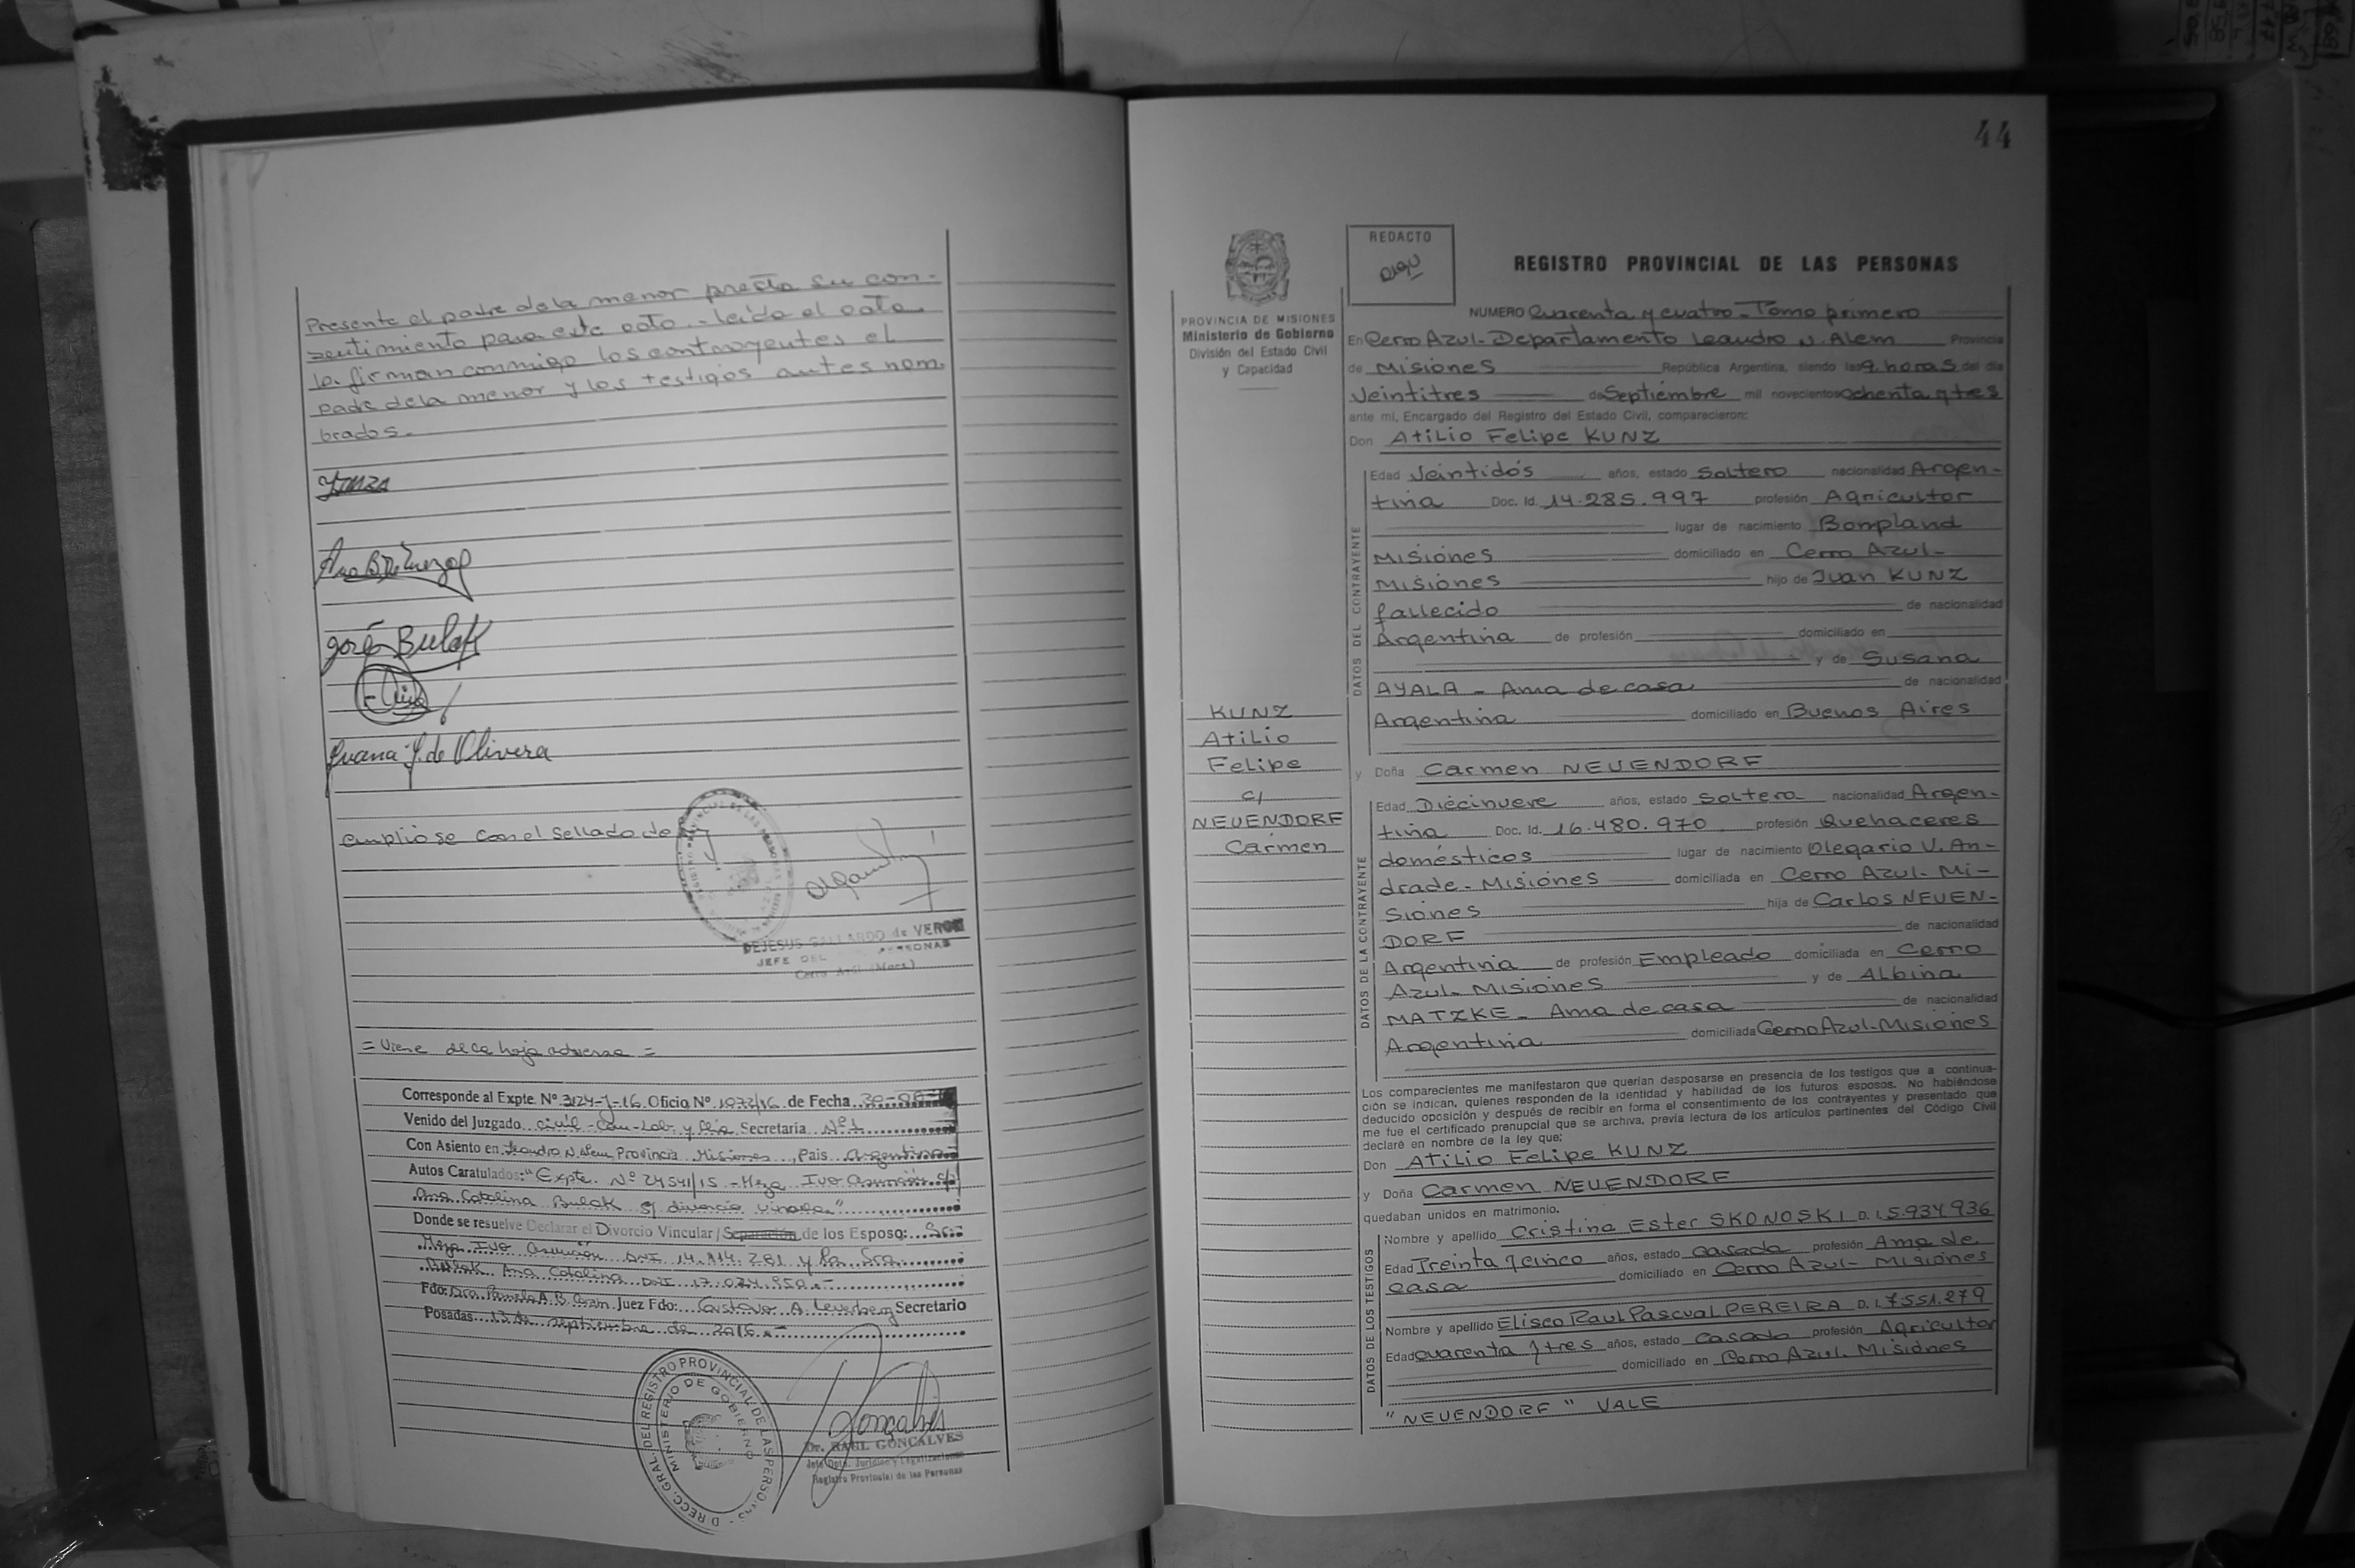 Presente el padre de la menor presta su con-
sentimiento para este acto.- leído el acta
la firman conmigo los contrayentes el
padre de la menor y los testigos antes nom-
brados.-
José Bulak
Juana J. de Olivera
Cumpliose con el sellado de ley
DEJESUS GALLARDO de VERON
JEFE DEL PERSONAS
Cerro Azul (Mnes.)
= Viene de la hoja adversa =
Corresponde al Expte. Nº 3124-J-16 Oficio Nº 1072/16 de Fecha 30-08-
Venido del Juzgado Civil-Com-Lab. y Flia Secretaría Nº 1
Con Asiento en Leandro N. Alem Provincia Misiones, País Argentina
Autos Caratulados: "Expte. Nº 24541/15 - Meza Ivo Asunción c/
Ana Catalina Bulak s/ divorcio vincular"
Donde se resuelve Declarar el Divorcio Vincular / Separación de los Esposo: Sr.
Meza Ivo Asunción DNI 14.914.281 y la Sra.
Bulak Ana Catalina DNI 17.024.950.-
Fdo: Dra. Pamela A.B. Juez Fdo: Gustavo A. Secretario
Posadas 13 de septiembre de 2016.-
DIRECC. GRAL. DEL REGISTRO PROVINCIAL DE LAS PERSONAS
MINISTERIO DE GOBIERNO
Dr. RAUL GONCALVES
Jefe Dpto. Jurídico y Legalizaciones
Registro Provincial de las Personas
44
REDACTO
REGISTRO PROVINCIAL DE LAS PERSONAS
PROVINCIA DE MISIONES
Ministerio de Gobierno
División del Estado Civil
y Capacidad
NUMERO Cuarenta y cuatro - Tomo primero
En Cerro Azul - Departamento Leandro N. Alem Provincia
de Misiones República Argentina, siendo las 9 horas del día
Veintitres de Septiembre mil novecientos ochenta y tres
ante mí, Encargado del Registro del Estado Civil, comparecieron:
Don Atilio Felipe KUNZ
DATOS DEL CONTRAYENTE
Edad Veintidós años, estado Soltero nacionalidad Argen-
tina Doc. Id. 14.285.997 profesión Agricultor
lugar de nacimiento Bonpland
Misiones domiciliado en Cerro Azul-
Misiones hijo de Juan KUNZ
fallecido de nacionalidad
Argentina de profesión domiciliado en
y de Susana
AYALA - Ama de casa de nacionalidad
Argentina domiciliado en Buenos Aires
KUNZ
Atilio
Felipe
c/
NEUENDORF
Carmen
y Doña Carmen NEUENDORF
DATOS DE LA CONTRAYENTE
Edad Diecinueve años, estado Soltera nacionalidad Argen-
tina Doc. Id. 16.480.970 profesión Quehaceres
domésticos lugar de nacimiento Olegario V. An-
drade - Misiones domiciliada en Cerro Azul - Mi-
siones hija de Carlos NEUEN-
DORF de nacionalidad
Argentina de profesión Empleado domiciliada en Cerro
Azul - Misiones y de Albina
MATZKE - Ama de casa de nacionalidad
Argentina domiciliada Cerro Azul - Misiones
Los comparecientes me manifestaron que querían desposarse en presencia de los testigos que a continua-
ción se indican, quienes responden de la identidad y habilidad de los futuros esposos. No habiéndose
deducido oposición y después de recibir en forma el consentimiento de los contrayentes y presentado que
me fue el certificado prenupcial que se archiva, previa lectura de los artículos pertinentes del Código Civil
declaré en nombre de la ley que:
Don Atilio Felipe KUNZ
y Doña Carmen NEUENDORF
quedaban unidos en matrimonio.
DATOS DE LOS TESTIGOS
Nombre y apellido Cristina Ester SKONOSKI D.I. 5.934.936
Edad Treinta y cinco años, estado casada profesión Ama de
casa domiciliado en Cerro Azul - Misiones
Nombre y apellido Eliseo Raul Pascual PEREIRA D.I. 7.551.279
Edad cuarenta y tres años, estado casado profesión Agricultor
domiciliado en Cerro Azul. Misiones
"NEUENDORF" VALE